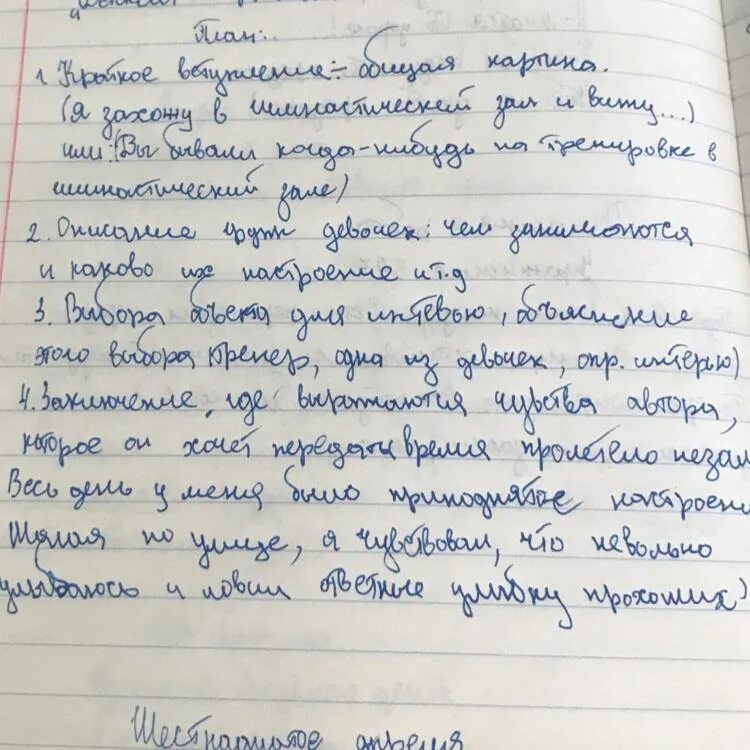 План:
1 Краткое вступление - общая картина.
(Я захожу в гимнастический зал и вижу...)
или: (Вы бывали когда-нибудь на тренировке в
гимнастический зале)
2. Описание групп девочек: чем занимаются
и каково их настроение и т.д
3. Выбора объекта для интевью, объяснение
этого выбора (тренер, одна из девочек, опр. интерью)
4. Заключение, где выражаются чувства автора,
которое он хочет передать время пролетело незам
Весь день у меня было приподнятое настроени
Шагая по улице, я чувствовал, что невольно
улыбаюсь и ловил ответные улыбку прохожих)
Шестнадцатое апреля